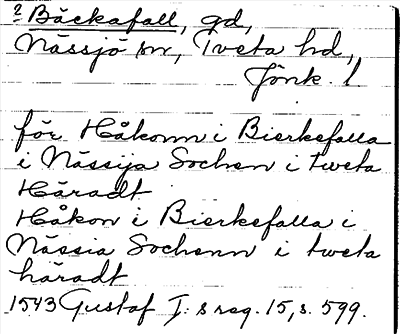 ? Bäckafall, gd,
Nässjö sn, Tveta hd,
Jönk. l
för Håkonn i Bierkefalla
i Nässija Sochen i tweta
Häradt
Håkon i Bierkefalla i
Nässia Sochenn i tweta
häradt
1543 Gustaf I: s reg. 15, s. 599.